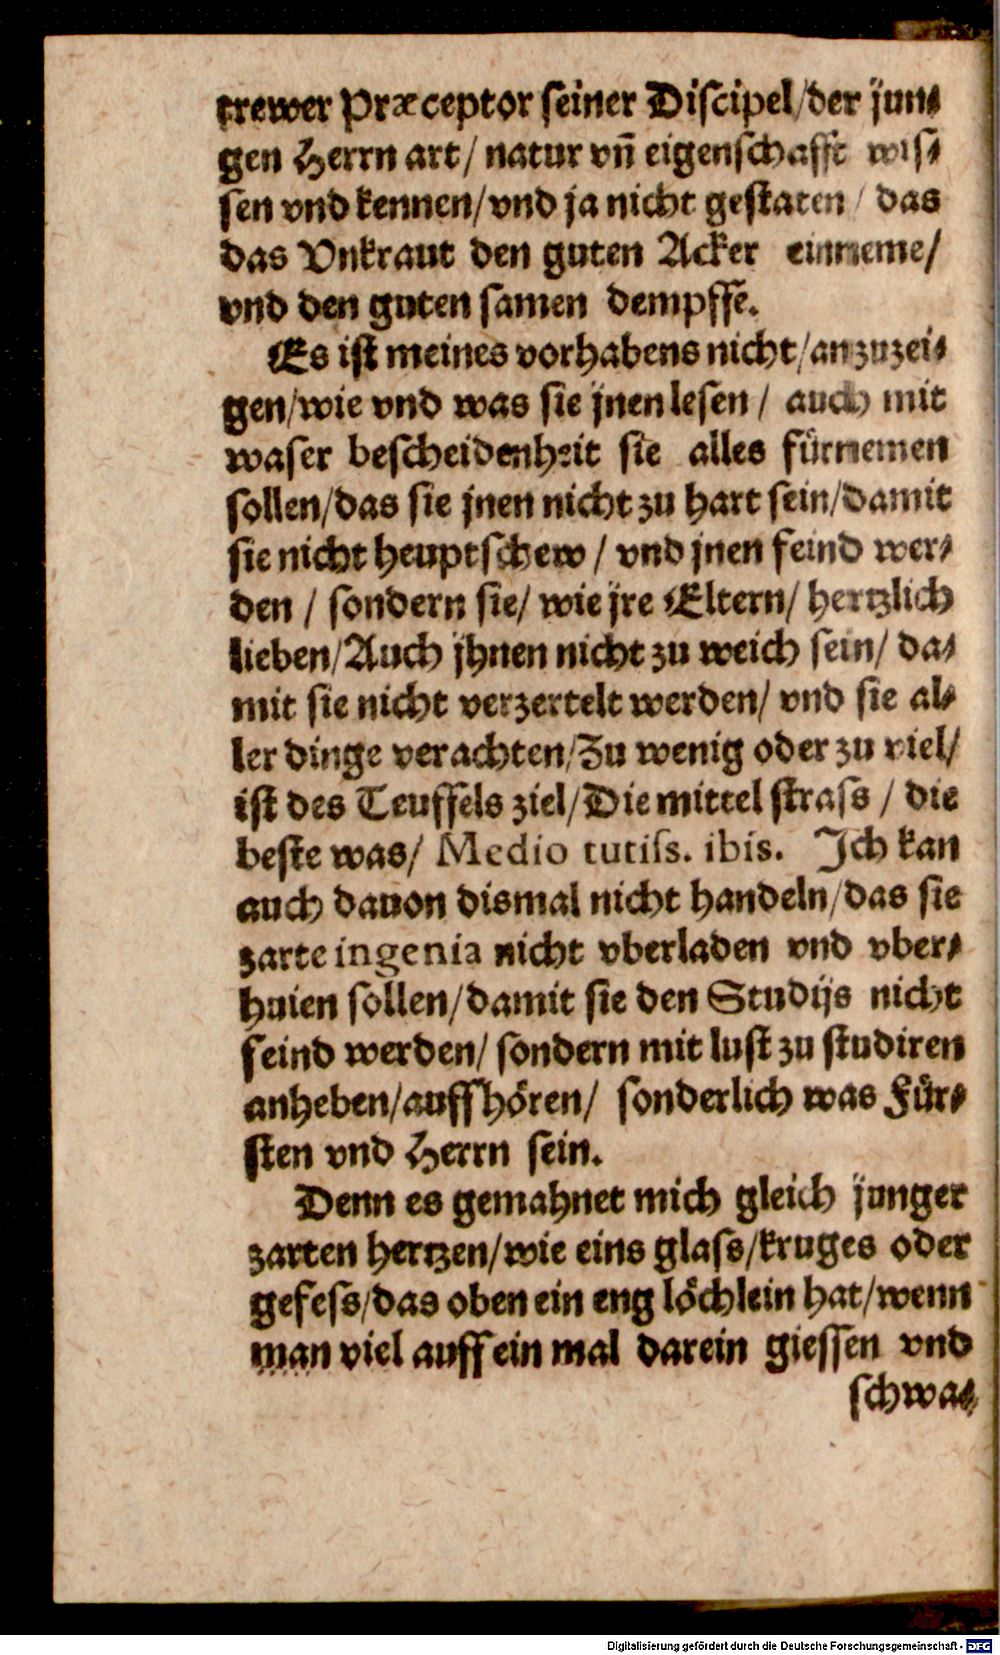 trewer Præceptor seiner Discipel/der jun⸗
gen Herrn art/ natur vñ eigenschafft wis⸗
sen vnd kennen/vnd ja nicht gestaten/ das
das Vnkraut den guten Acker einneme/
vnd den guten samen dempffe.
Es ist meines vorhabens nicht/anzuzei⸗
gen/wie vnd was sie jnen lesen/ auch mit
waser bescheidenheit sie alles fürnemen
sollen/das sie jnen nicht zu hart sein/damit
sie nicht heuptschew/ vnd jnen feind wer⸗
den/ sondern sie/ wie jre Eltern/ hertzlich
lieben/Auch jhnen nicht zu weich sein/ da⸗
mit sie nicht verzertelt werden/ vnd sie al⸗
ler dinge verachten/Zu wenig oder zu viel/
ist des Teuffels ziel/Die mittel strass/ die
beste was/ Medio tutiss. ibis. Ich kan
auch dauon dismal nicht handeln/das sie
zarte ingenia nicht vberladen vnd vber⸗
huien sollen/damit sie den Studijs nicht
feind werden/ sondern mit lust zu studiren
anheben/auffhören/ sonderlich was Für⸗
sten vnd Herrn sein.
Denn es gemahnet mich gleich junger
zarten hertzen/wie eins glass/kruges oder
gefess/das oben ein eng löchlein hat/wenn
man viel auff ein mal darein giessen vnd
schwa⸗
Digitalisierung gefördert durch die Deutsche Forschungsgemeinschaft - DFG